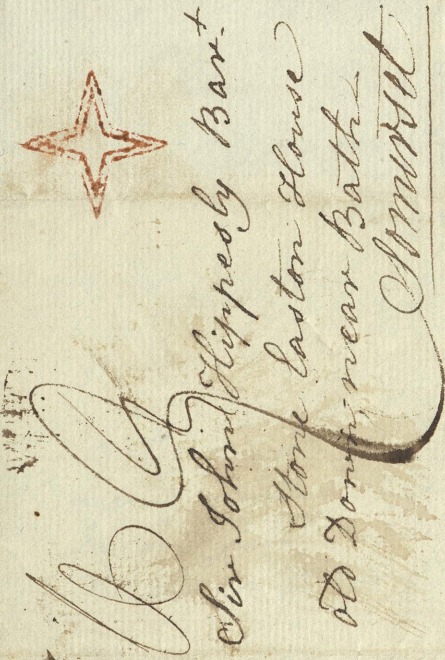 Sir John Hippesly Bart
Stone Easton House
old Down, near Bath
Somerset